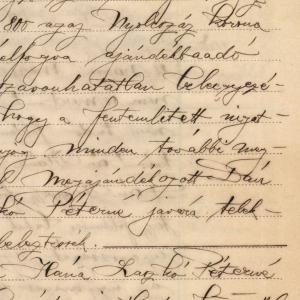 800 azaz Nyolczáz korona
élfogva ajándékbaadó
szavonhatatlan beleegyezé-
hogy a fentemlített ingat-
jog minden további meg-
megajándékozott Dan
kó Péterné javára tekek-
kebeleztessék.
Hana Laszkó Péterné